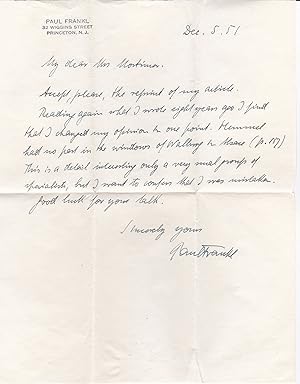 PAUL FRANKL
32 WIGGINS STREET
PRINCETON, N. J.
Dec. 5. 51
My dear Mrs Mortimer.
Accept please, the reprint of my article.
Reading again what I wrote eight years ago I find
that I changed my opinion in one point. Hemmel
had no part in the windows of Walburg in Alsace (p. 187)
This is a detail interesting only a very small group of
specialists, but I want to confess that I was mistaken.
Good luck for your talk.
Sincerely yours
Paul Frankl